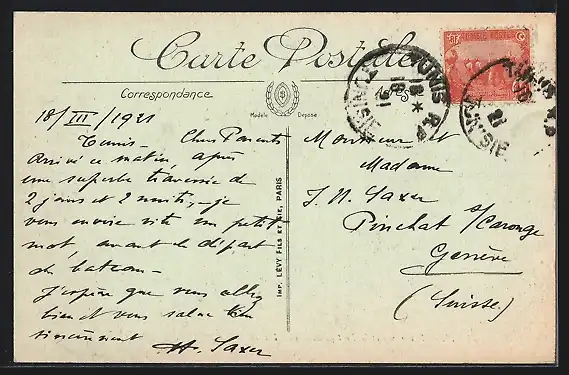 Carte Postale
Correspondance
Modèle Déposé
Adresse
18/III/1921
Tunis – Chers Parents
Arrivé ce matin, après
une superbe traversée de
2 jours et 2 nuits, – je
vous envoie vite un petit
mot, avant le départ
du bateau –
J'espère que vous allez
bien et vous salue bien
sincèrement
H. Saxer
IMP. LÉVY FILS ET CIE, PARIS
Monsieur et
Madame
J. N. Saxer
Pinchat s/Carouge
Genève
(Suisse.)
TUNISIE POSTES
RF
TUNIS R.P
TUNISIE
TUNISIE